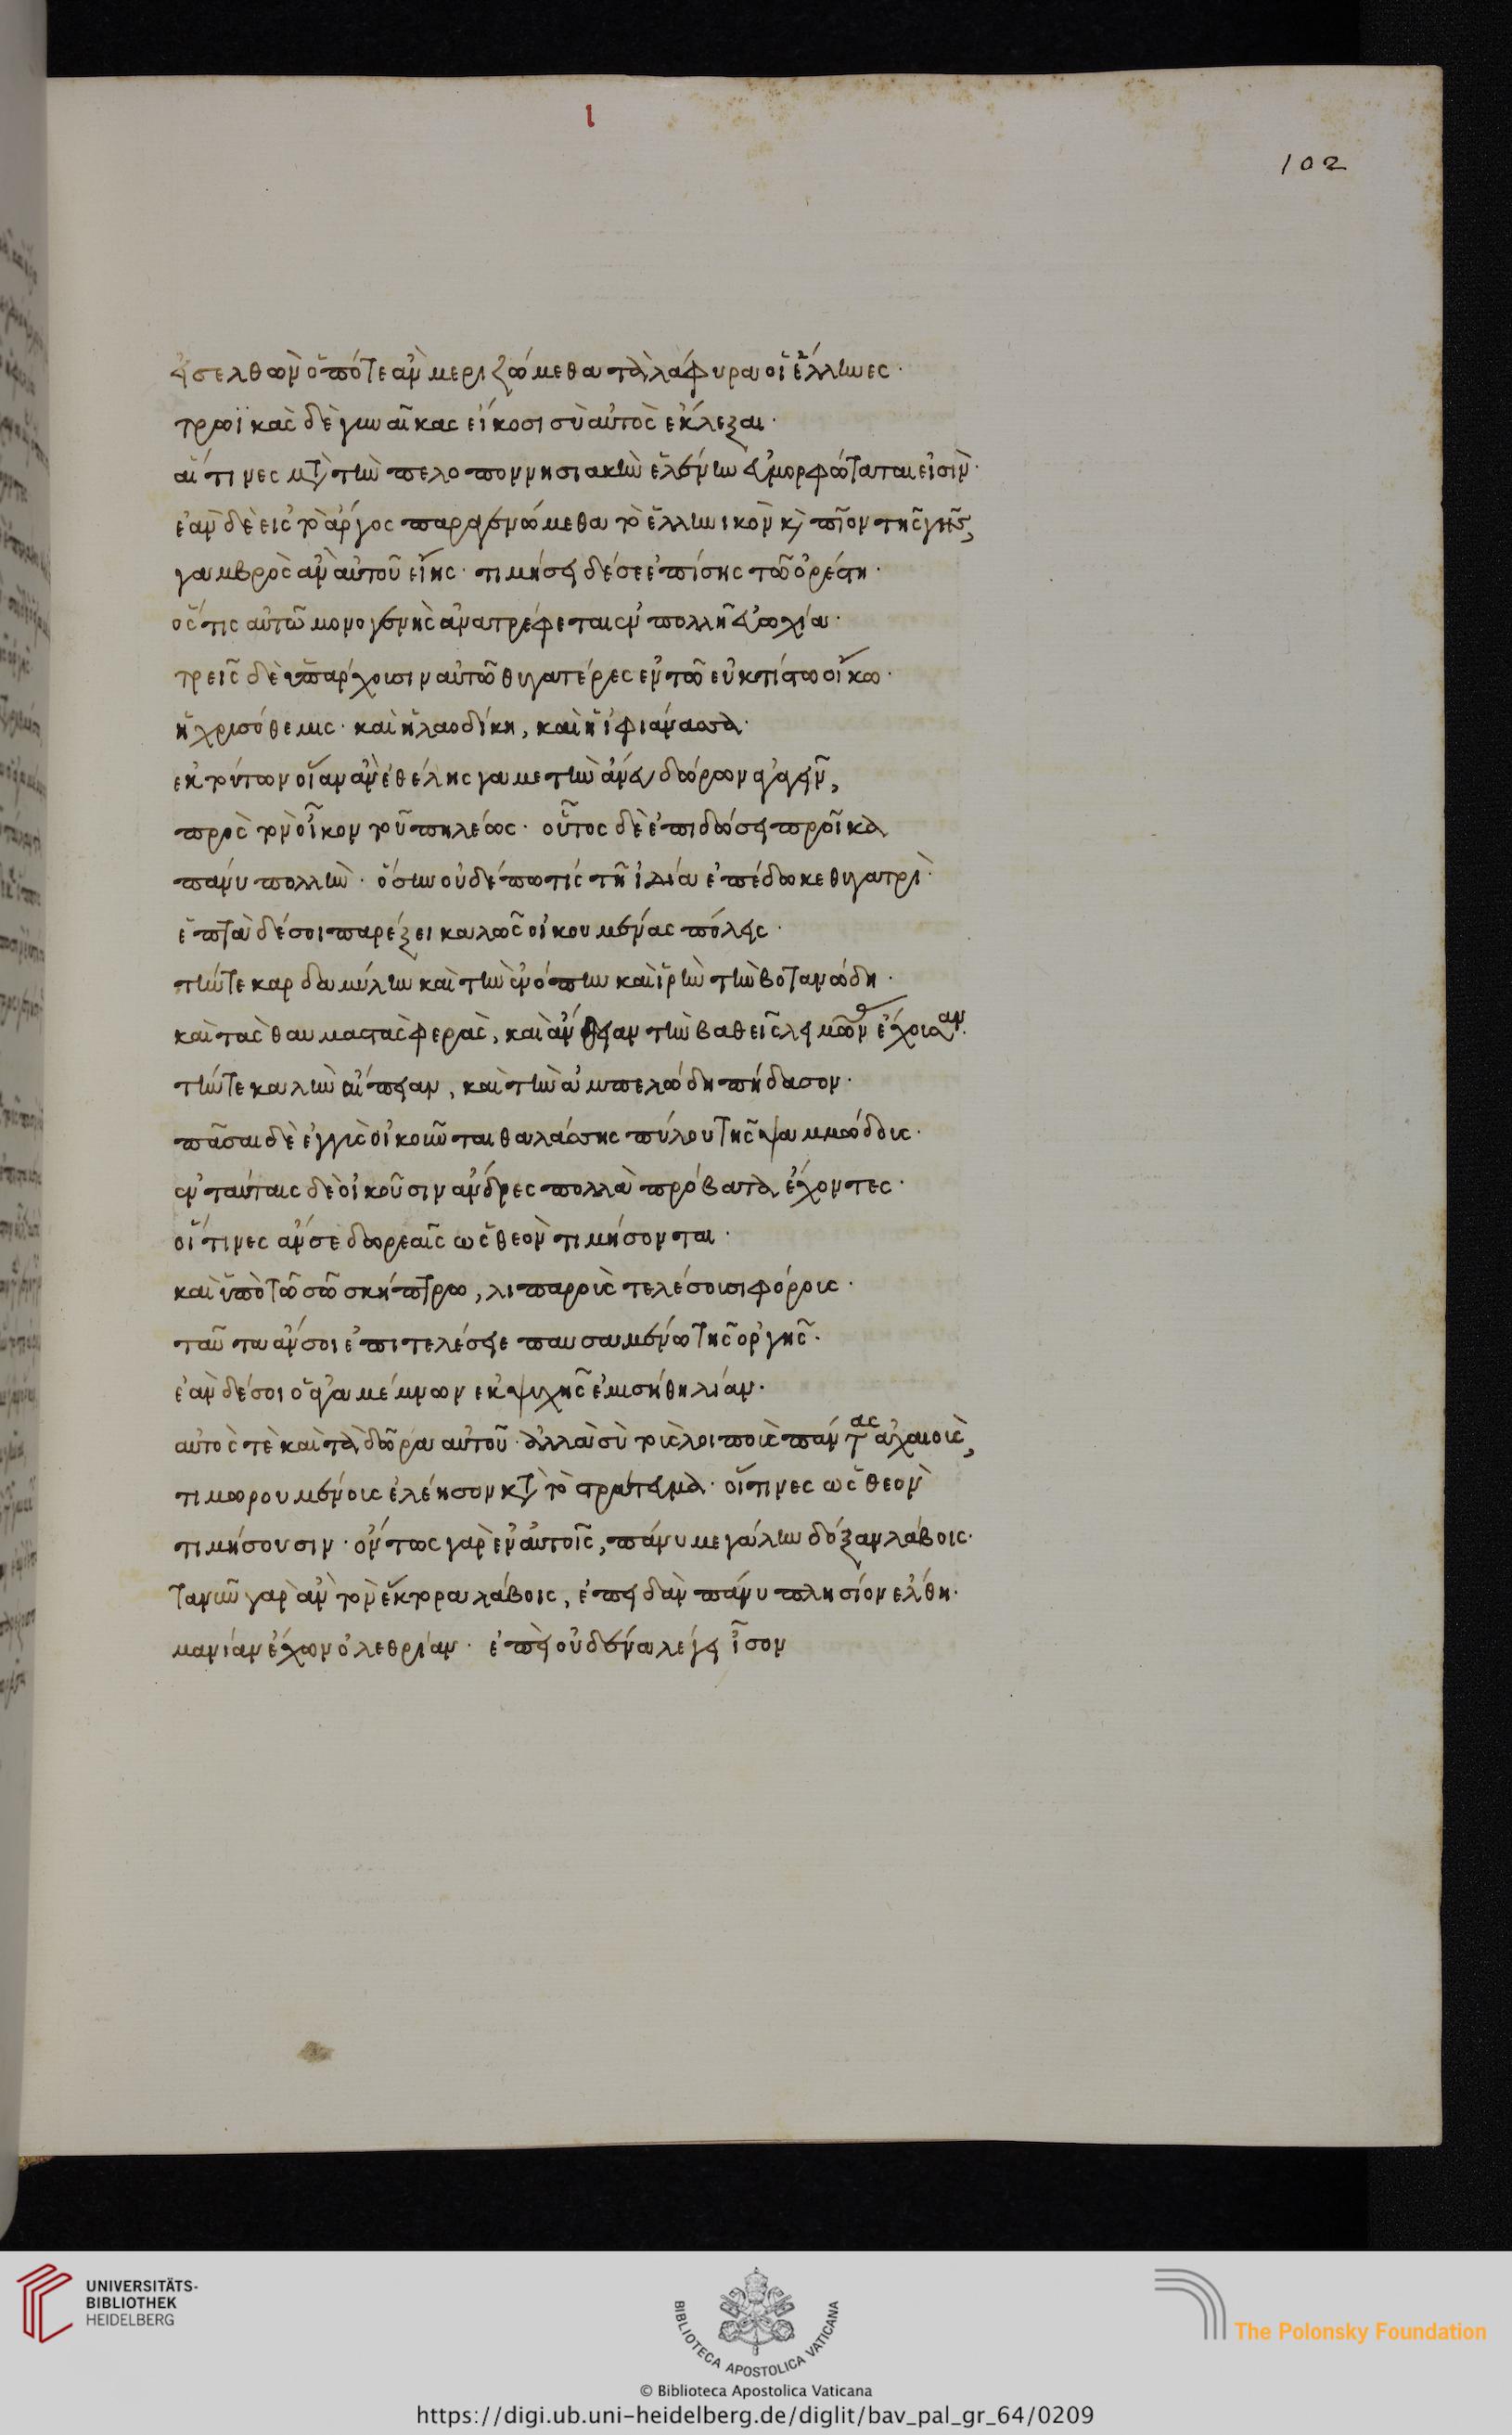 ι
102
εἰσελθὼν ὁπότε ἂν μεριζώμεθα τὰ λάφυρα οἱ ἕλληνες·
τρωϊκὰς δὲ γυναῖκας εἴκοσι σὺ αὐτὸς ἔκλεξαι·
αἵτινες μετὰ τὴν πελοποννησιακὴν ἑλένην εὐμορφώταται εἰσὶν·
ἐὰν δὲ εἰς τὸ ἄργος παραγενώμεθα τὸ ἑλληνικὸν καὶ πῖον τῆς γῆς,
γαμβρὸς ἂν αὐτοῦ εἴης· τιμήσει δέ σε ἐπίσης τῶ ὀρέστη·
ὅς τις αὐτῶ μονογενὴς ἀνατρέφεται ἐν πολλῆ εὐωχία·
τρεῖς δὲ ὑπάρχουσιν αὐτῶ θυγατέρες ἐν τῶ εὐκτίστω οἴκω·
ἡ χρυσόθεμις· καὶ ἡ λαοδίκη, καὶ ἡ ἰφιάνασσα·
ἐκ τούτων οἵαν ἂν ἐθέλης γαμετὴν ἄνευ δώρων ἄγειν,
πρὸς τὸν οἶκον τοῦ πηλέως· οὗτος δὲ ἐπιδώσει προῖκα
πάνυ πολλὴν· ὅσην οὐδέπω τίς τῆ ἰδία ἐπέδωκε θυγατρὶ·
ἑπτὰ δέ σοι παρέξει καλῶς οἰκουμένας πόλεις·
τήν τε καρδαμύλην καὶ τὴν ἐνόπην καὶ ἱρὴν τὴν βοτανώδη·
καὶ τὰς θαυμαστὰς φερὰς, καὶ ἄνθειαν τὴν βαθεῖς λειμῶν ἔχουσαν·
τήν τε καλὴν αἴπειαν, καὶ τὴν ἀμπελώδη πήδασον·
πᾶσαι δὲ ἐγγὺς οἰκοῦνται θαλάσσης πύλου τῆς ψαμμώδους·
ἐν ταύταις δὲ οἰκοῦσιν ἄνδρες πολλὰ πρόβατα ἔχοντες·
οἵτινες ἄν σε δωρεαῖς ὡς θεὸν τιμήσονται·
καὶ ὑπὸ τῶ σῶ σκήπτρω, λιπαροὺς τελέσουσι φόρους·
ταῦτα ἄν σοι ἐπιτελέσειε παυσαμένω τῆς ὀργῆς·
ἐὰν δέ σοι ὁ ἀγαμέμνων ἐκ ψυχῆς ἐμισήθη λίαν·
αὐτός τὲ καὶ τὰ δῶρα αὐτοῦ· ἀλλὰ σὺ τοὺς λοιποὺς πάντας ἀχαιοὺς,
τιμωρουμένους ἐλέησον κατὰ τὸ στράτευμα· οἵτινες ὡς θεὸν
τιμήσουσιν· ὄντως γὰρ ἐν αὐτοῖς, πάνυ μεγάλην δόξαν λάβοις·
τανῦν γὰρ ἂν τὸν ἕκτορα λάβοις, ἐπειδὰν πάνυ πλησίον ἔλθη·
μανίαν ἔχων ὀλεθρίαν· ἐπεὶ οὐδένα λέγει ἶσον
UNIVERSITÄTS-
BIBLIOTHEK
HEIDELBERG
BIBLIOTECA APOSTOLICA VATICANA
The Polonsky Foundation
© Biblioteca Apostolica Vaticana
https://digi.ub.uni-heidelberg.de/diglit/bav_pal_gr_64/0209